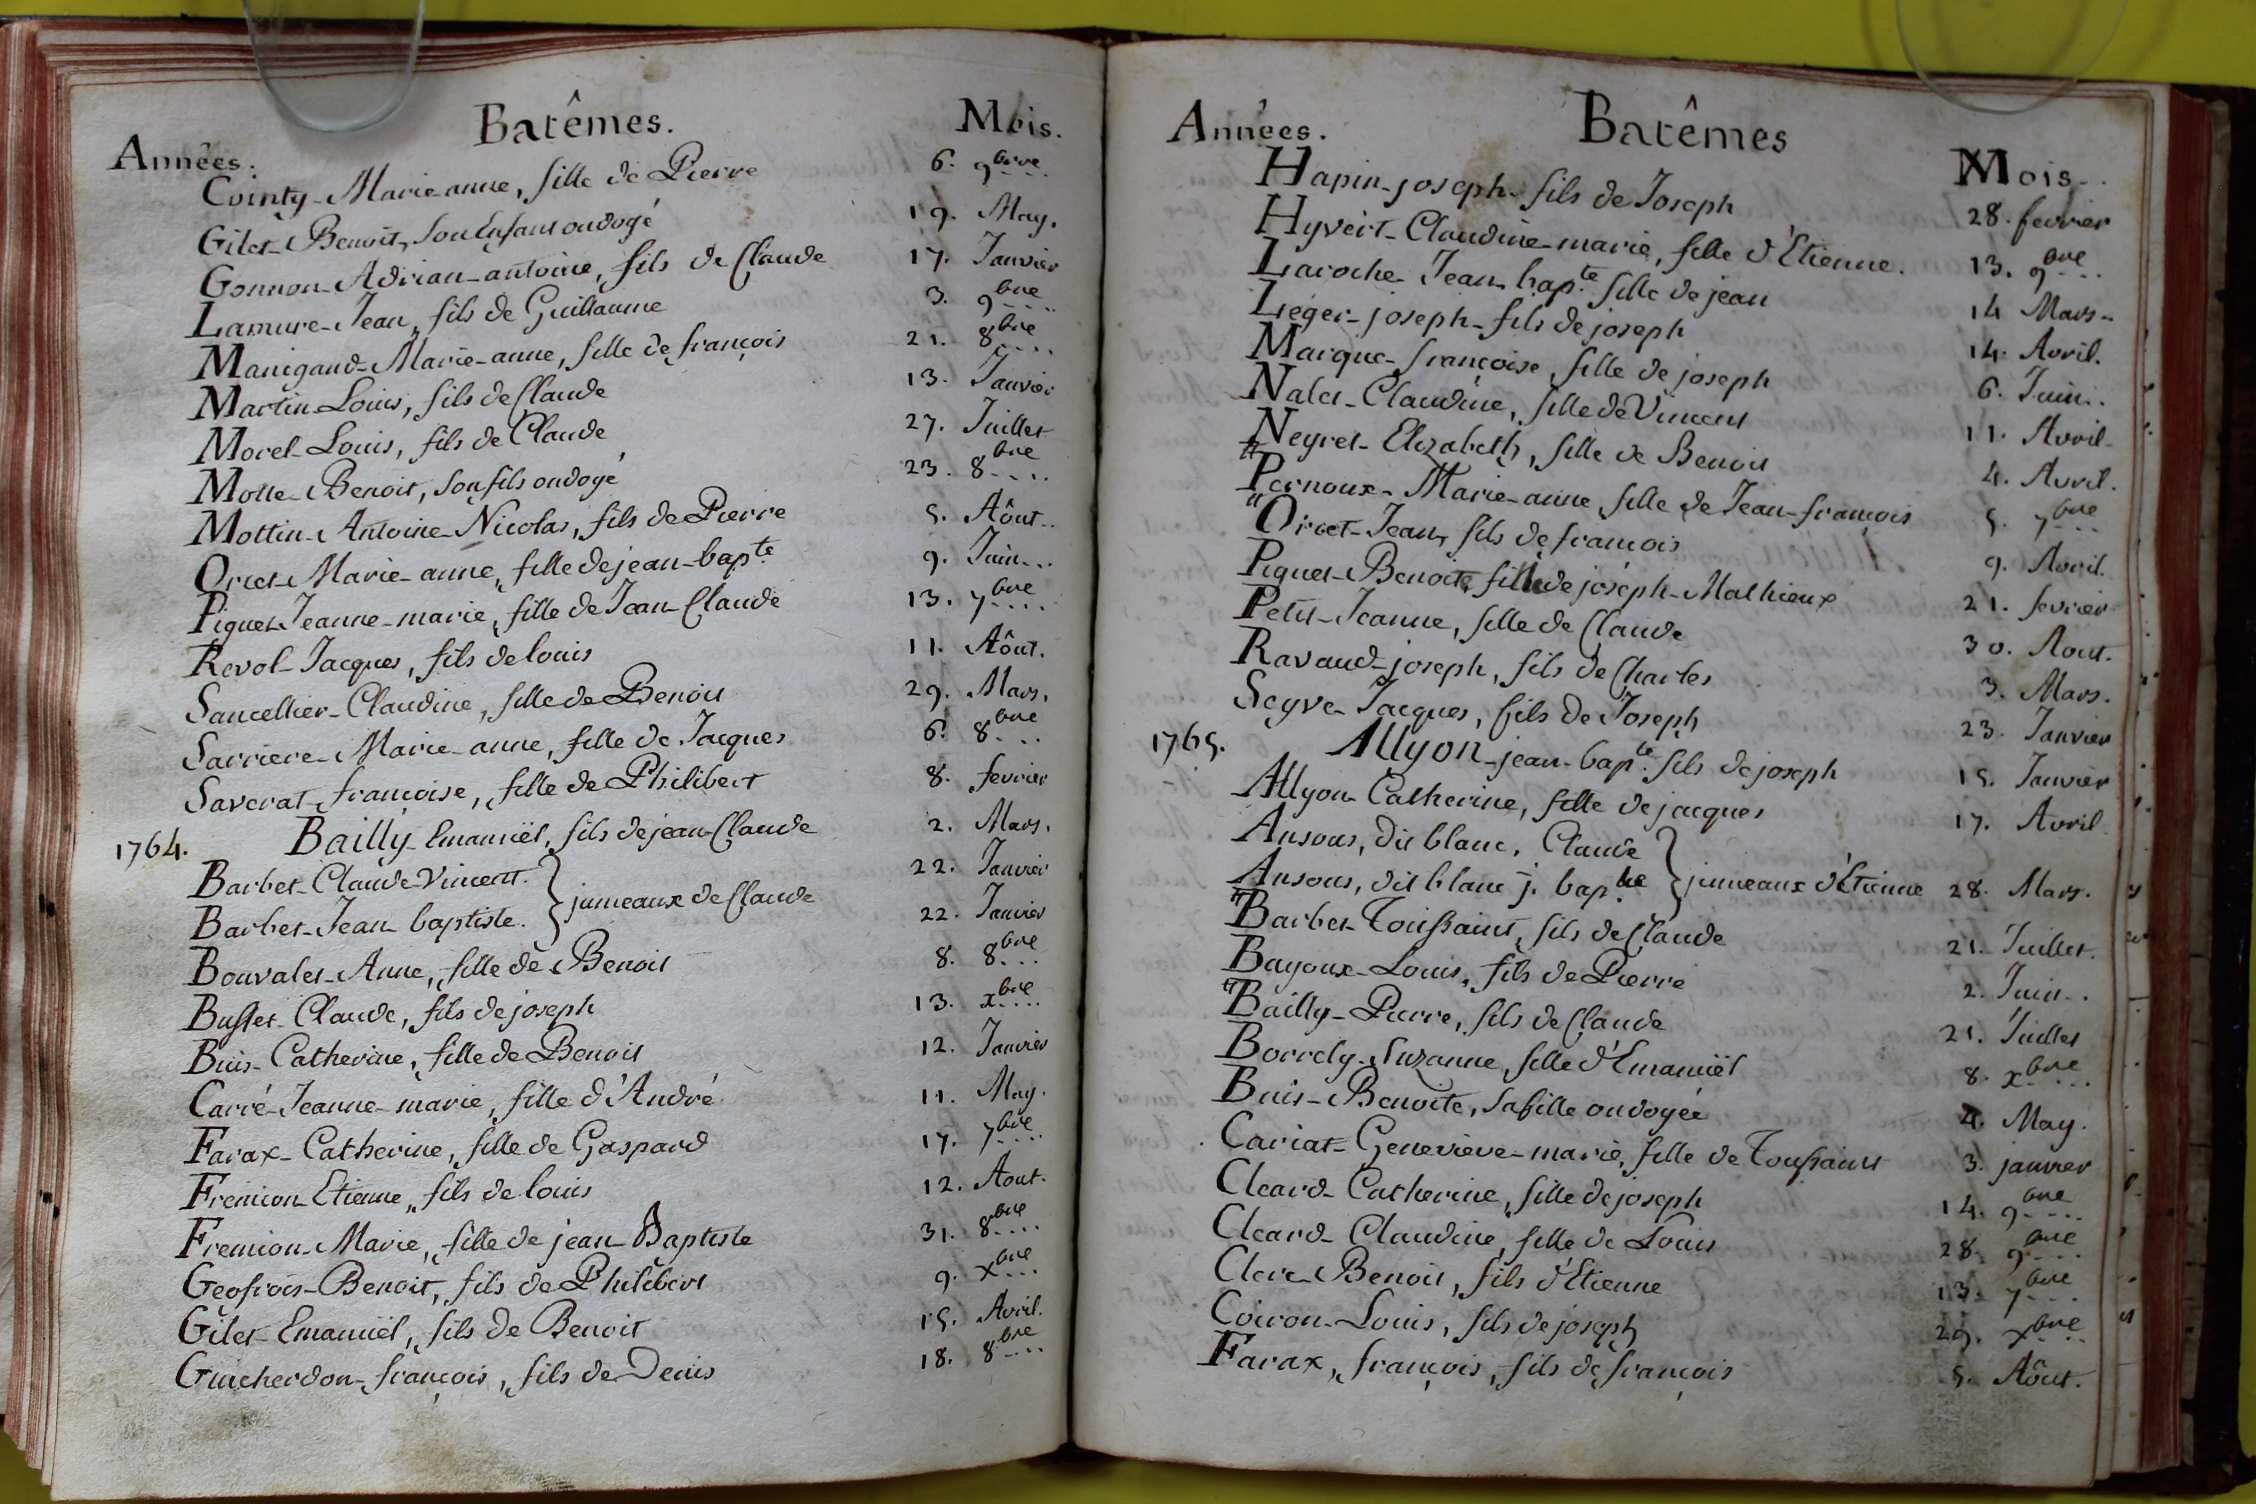 Batêmes.
Années. Mois.
Cointy - Marie-anne, fille de Pierre 6. 9bre
Gilet - Benoit, son Enfant ondoyé 19. May.
Gonnon - Adrian - antoine, fils de Claude 17. Janvier
Lamure - Jean, fils de Guillaume 3. 9bre
Manigand - Marie - anne, fille de françois 21. 8bre
Martin Louis, fils de Claude 13. Janvier
Morel - Louis, fils de Claude 27. Juillet
Motte - Benoit, son fils ondoyé 23. 8bre
Mottin - Antoine - Nicolas, fils de Pierre 5. Aôut
Orcet - Marie - anne, fille de jean - bapte 9. Juin
Piquet Jeanne - marie, fille de Jean Claude 13. 7bre
Revol - Jacques, fils de louis 11. Aôut.
Sancellier - Claudine, fille de Benoit 29. Mars.
Sarriere - Marie - anne, fille de Jacques 6. 8bre
Saverat - françoise, fille de Philibert 8. fevrier
1764. Bailly - Emanüel, fils de jean Claude 2. Mars.
Barbet - Claude - Vincent. 22. Janvier
jumeaux de Claude
Barbet - Jean baptiste. 22. Janvier
Bouvalet - Anne, fille de Benoit 8. 8bre
Busset - Claude, fils de joseph 13. xbre
Buis - Catherine, fille de Benoit 12. Janvier
Carré - Jeanne - marie, fille d'André 11. May.
Farax - Catherine, fille de Gaspard 17. 7bre
Fremion Etienne, fils de louis 12. Aout.
Fremion - Marie, fille de jean Baptiste 31. 8bre
Geofrois - Benoit, fils de Philibert 9. xbre
Gilet - Emanüel, fils de Benoit 15. Avril.
Guicherdon - françois, fils de Denis 18. 8bre
Années. Batêmes Mois
Hapin - joseph - fils de Joseph 28. fevrier
Hyvert - Claudine - marie, fille d'Etienne. 13. 9bre
Laroche - Jean bapte fille de jean 14 Mars
Leger - joseph - fils de joseph 14. Avril.
Marque - françoise, fille de joseph 6. Juin
Nalet - Claudine, fille de Vincent 11. Avril
Neyret - Elizabeth, fille de Benoit 4. Avril.
Pernoux - Marie - anne, fille de Jean - françois 5. 7bre
Orcet - Jean, fils de francois 9. Avril.
Piquet - Benoite fille de joseph - Mathieux 21. fevrier
Petit - Jeanne, fille de Claude 30. Aout.
Ravaud - joseph, fils de Charles 3. Mars.
Seyve - Jacques, fils de Joseph 23. Janvier
1765. Allyon - jean - bapte. fils de joseph 15. Janvier
Allyon - Catherine, fille de jacques 17. Avril
Ansous, dit blanc, Claude
jumeaux d'Etienne 28. Mars.
Ansous, dit blanc j. bapte
Barbet - Toussaint, fils de Claude 21. Juillet.
Bayoux - Louis, fils de Pierre 2. Juin
Bailly - Pierre, fils de Claude 21. Juillet
Borrely - Suzanne, fille d'Emanüel 8. xbre
Buis - Benoite, sa fille ondoyée 4. May.
Cariat - Genevieve - marie, fille de Toussaint 3. janvier
Cleard - Catherine, fille de joseph 14. 9bre
Cleard - Claudine, fille de Louis 28. 9bre
Clere - Benoit, fils d'Etienne 13. 7bre
Coiron - Louis, fils de joseph 29. xbre
Farax, françois, fils de françois 5. Aôut.